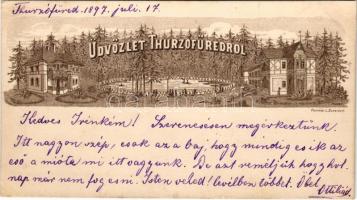 Thurzófüred. 1897. juli. 17.
ÜDVÖZLET THURZÓFÜREDRŐL
Kedves Irénkém! Szerencsésen megérkeztünk.
Itt nagyon szép, csak az a baj, hogy mindég esik az
eső a mióta mi itt vagyunk. De azt reméljük hogy hol-
nap már nem fog esni. Isten veled! levélben többet. Ölel